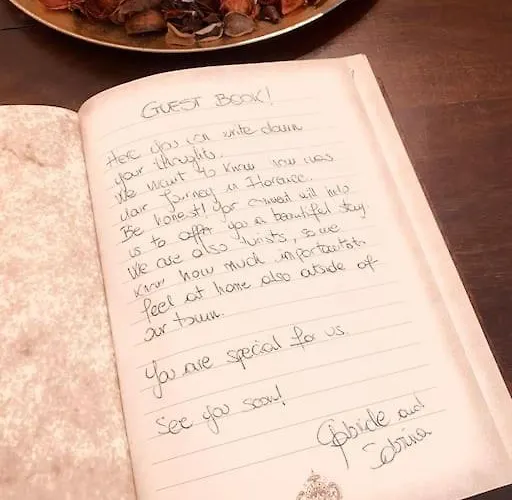 GUEST BOOK!
Here you can write down
your thoughts.
We want to know how was
your journey in Florence.
Be honest! your comment will help
us to offer you a beautiful stay.
We are also turists, so we
know how much important is to
feel at home also outside of
our town.
You are special for us.
See you soon!
Gabriele and
Sabrina